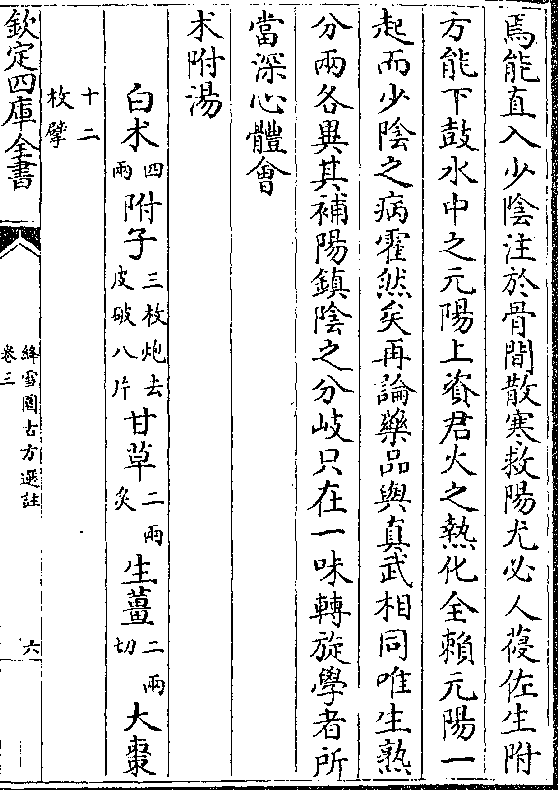 焉能直入少陰注於骨間散寒救陽尤必人葠佐生附
方能下鼓水中之元陽上資君火之熱化全賴元陽一
起而少陰之病霍然矣再論藥品與真武相同唯生熟
分兩各異其補陽鎮陰之分岐只在一味轉旋學者所
當深心體會
术附湯
白术四兩附子三枚炮去皮破八片甘草二兩炙生薑二兩切大棗
十二枚擘
欽定四庫全書
絳雪園古方選註
卷三
六